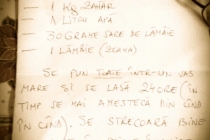 — 1 KG ZAHAR
— 1 LITRU APĂ
— 30 GRAME SARE DE LĂMÎIE
— 1 LĂMÎIE (ZEAMA)
SE PUN TOATE INTR-UN VAS
MARE ȘI SE LASĂ 24 ORE (ÎN
TIMP SE MAI AMESTECĂ DIN CÎND
ÎN CÎND). SE STRECOARĂ BINE